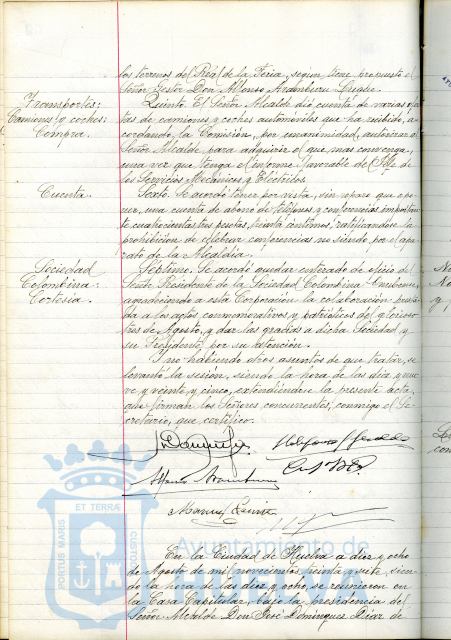 los terrenos del Real de la Feria, segun tiene propuesto el
Señor Gestor Don Alfonso Aramburu
Transportes:
Camiones y coches:
Compra.
Quinto. El Señor Alcalde dió cuenta de varias
tas de camiones y coches automóviles que ha recibido, a
cordando la Comisión, por unanimidad, autorizar al
Señor Alcalde para adquirir el que mas convenga,
una vez que tenga el informe favorable del Jefe de
los Servicios Mecánicos y Eléctricos.
Cuenta.
Sexto. Se acordó tener por vista, sin reparo que opo-
ner, una cuenta de abono de teléfonos y conferencias, importan
te cuatrocientas tres pesetas, treinta céntimos, ratificándose la
prohibición de celebrar conferencias no siendo por el apa-
rato de la Alcaldía.
Sociedad
Colombina:
Cortesia.
Septimo. Se acordó quedar enterado de oficio del
Presidente de la Sociedad Colombina Onubense,
agradeciendo a esta Corporación la colaboración pres
da a los actos conmemorativos y patrióticos del
tres de Agosto, y dar las gracias a dicha Sociedad y
su Presidente por su atención.
Y no habiendo otros asuntos de que tratar, se
levantó la sesión, siendo la hora de las diez y nue
ve y veinte y cinco, extendiéndose la presente acta,
que firman los Señores concurrentes, conmigo el Se-
cretario, que certifico.
Alfonso Aramburu
En la Ciudad de Huelva a diez y ocho
de Agosto de mil novecientos treinta y siete, sien
do la hora de las diez y ocho, se reunieron en
la Casa Capitular, bajo la presidencia del
Señor Alcalde Don José Dominguez Diaz de
ET TERRÆ
PORTUS MARIS
CUSTODIA
Ayuntamiento de
HUELVA